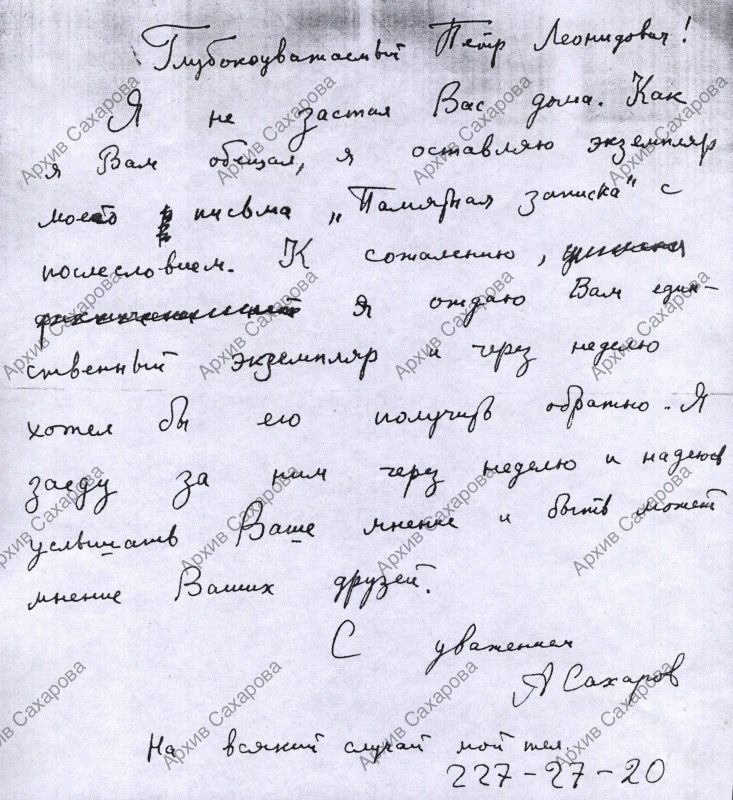 Глубокоуважаемый Петр Леонидович!
Я не застал Вас дома. Как
я Вам обещал, я оставляю экземпляр
моего письма „Памятная записка" с
послесловием. К сожалению,
я отдаю Вам един-
ственный экземпляр и через неделю
хотел бы его получить обратно. Я
заеду за ним через неделю и надеюсь
услышать Ваше мнение и быть может
мнение Ваших друзей.
С уважением
А Сахаров
На всякий случай мой тел.
227-27-20
Архив Сахарова